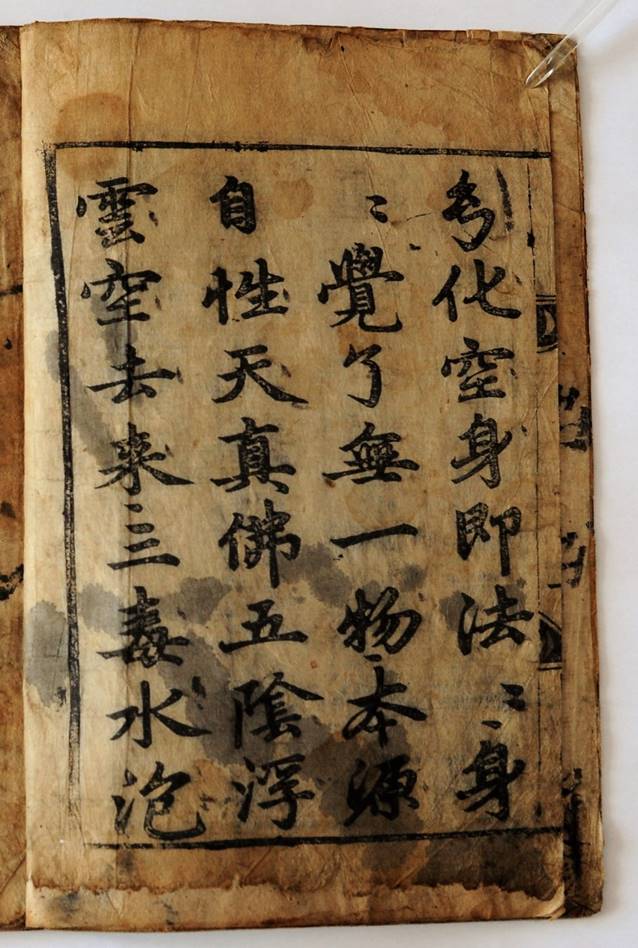 幻化空身即法〻身
〻覺了無一物本源
自性天真佛五陰浮
雲空去来三毒水泡